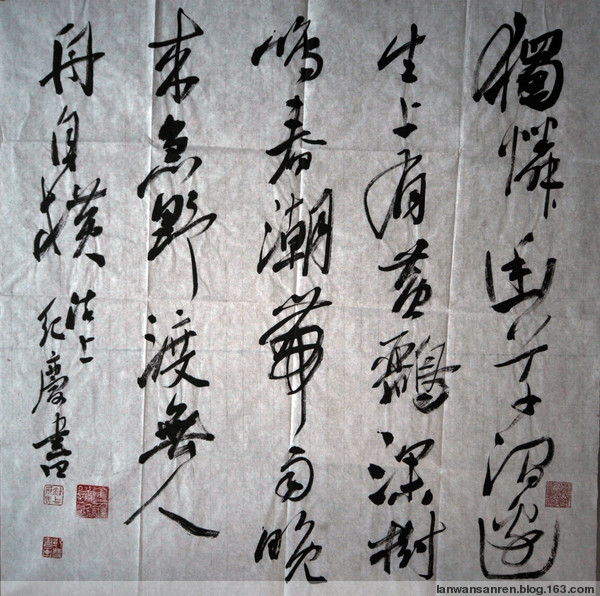 獨憐幽草澗邊
生上有黃鸝深樹
鳴春潮帶雨晚
來急野渡無人
舟自橫
沽上
紀慶書
lanwansanren.blog.163.com